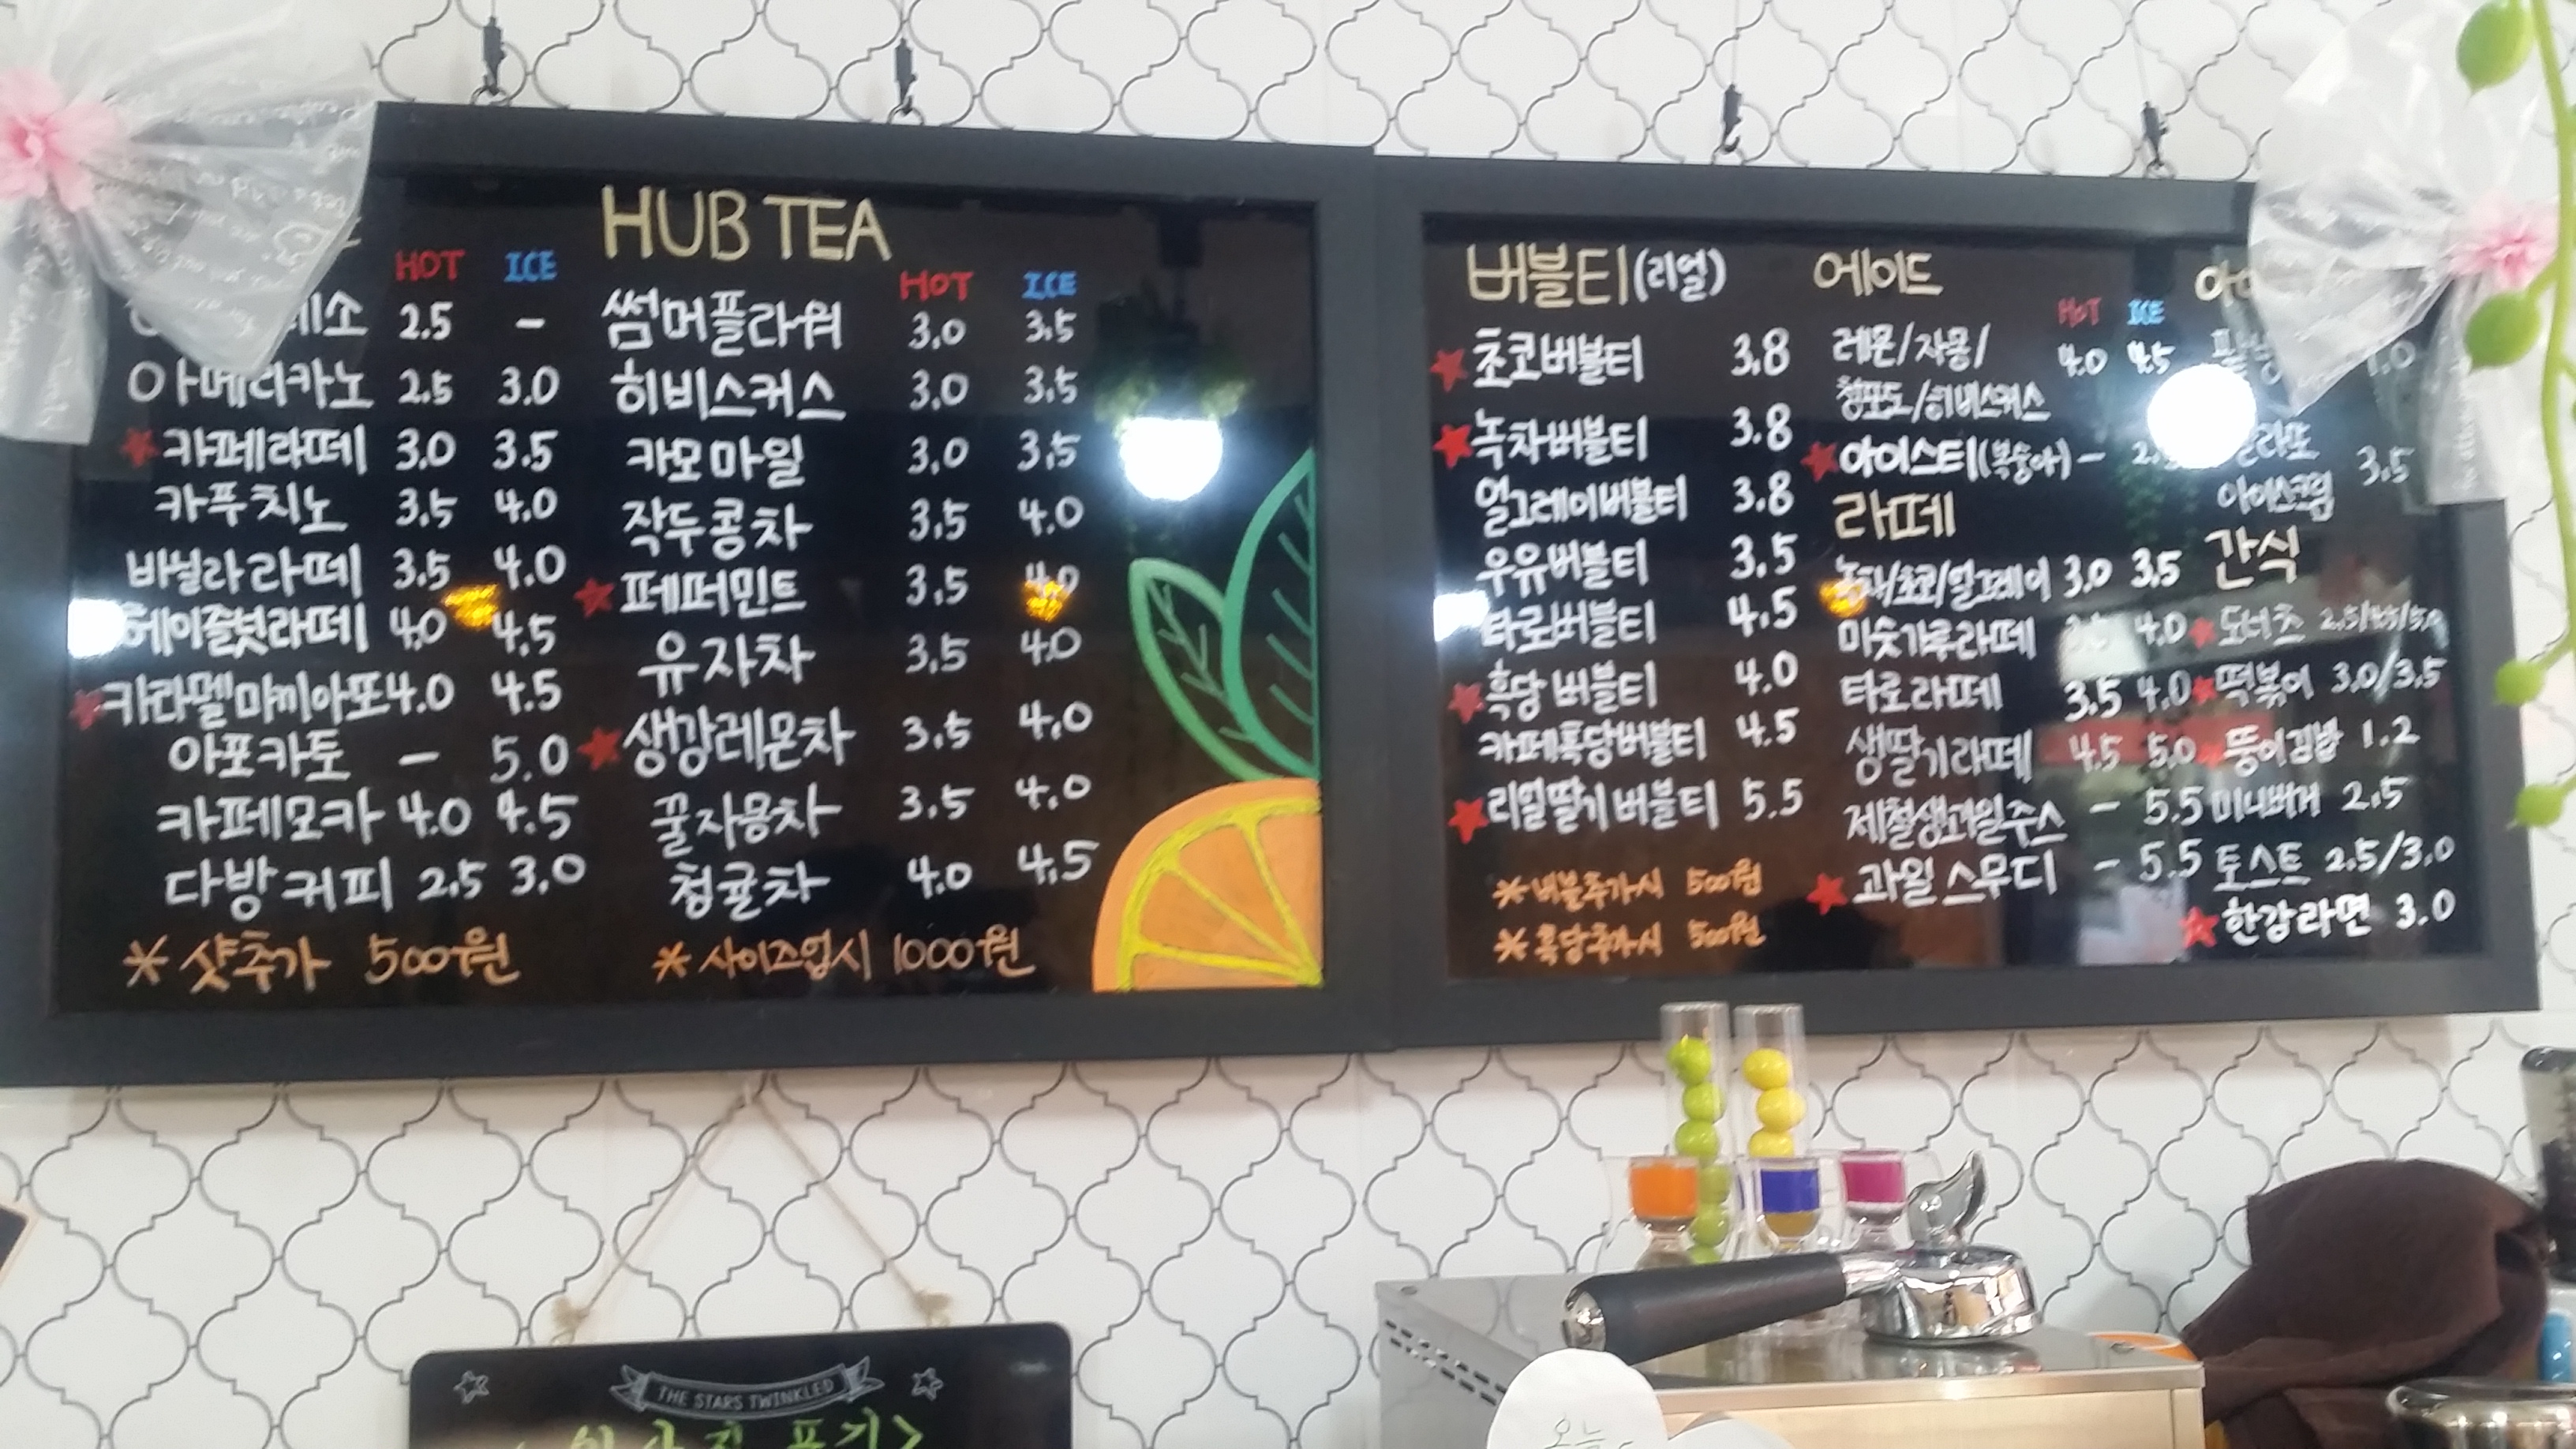 HOT ICE
2.5 -
아메리카노 2.5 3.0
카페라떼 3.0 3.5
카푸치노 3.5 4.0
바닐라라떼 3.5 4.0
헤이즐넛라떼 4.0 4.5
카라멜마끼아또 4.0 4.5
아포카토 - 5.0
카페모카 4.0 4.5
다방커피 2.5 3.0
*샷추가 500원
HUB TEA
HOT ICE
썸머플라워 3.0 3.5
히비스커스 3.0 3.5
카모마일 3.0 3.5
작두콩차 3.5 4.0
페퍼민트 3.5 4.0
유자차 3.5 4.0
생강레몬차 3.5 4.0
꿀자몽차 3.5 4.0
청귤차 4.0 4.5
*사이즈업시 1000원
버블티(리얼)
초코버블티 3.8
녹차버블티 3.8
얼그레이버블티 3.8
우유버블티 3.5
타로버블티 4.5
흑당버블티 4.0
카페흑당버블티 4.5
리얼딸기버블티 5.5
*버블추가시 500원
*흑당추가시 500원
에이드
HOT ICE
레몬/자몽/ 4.0 4.5
청포도/히비스커스
아이스티(복숭아) -
라떼
녹차/초코/얼그레이 3.0 3.5
미숫가루라떼 4.0
타로라떼 3.5 4.0
생딸기라떼 4.5 5.0
제철생과일주스 - 5.5
과일스무디 - 5.5
아이스크림 3.5
간식
도너츠
떡볶이 3.0/3.5
뚱이김밥 1.2
미니버거 2.5
토스트 2.5/3.0
한강라면 3.0
THE STARS TWINKLED
오늘